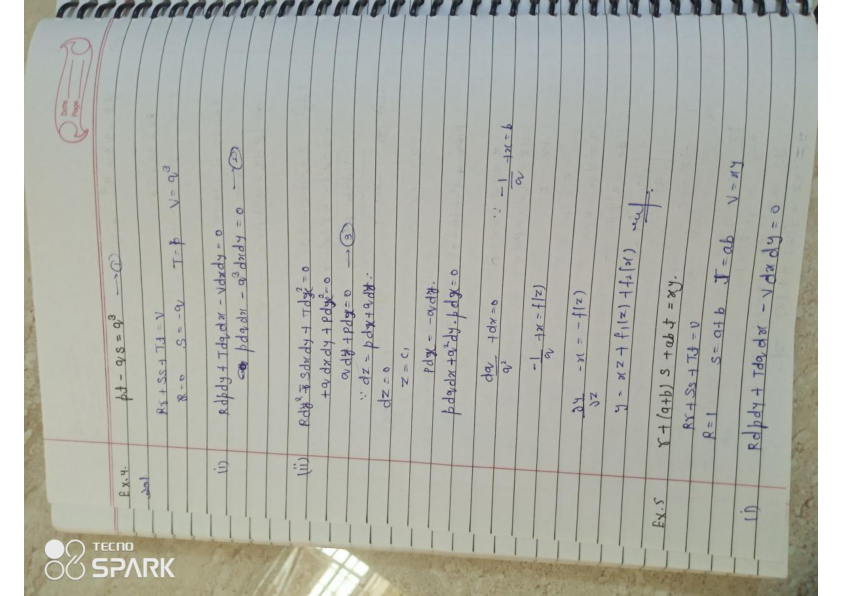 Date
Page
Ex.4. pt - qs = q³ → ①
Sol Rr + Ss + Tt = V
R = 0 S = -q T = p V = q³
i) Rdpdy + Tdqdx - Vdxdy = 0
pdqdx - q³dxdy = 0 — ②
(ii) Rdy² - Sdxdy + Tdx² = 0
+ q dxdy + pdx² = 0
q dy + pdx = 0 → ③
∵ dz = pdx + qdy
dz = 0
z = c₁
pdx = -qdy
pdqdx + q²dy.pdx = 0
dq/q² + dx = 0 ∵ -1/q + x = b
-1/q + x = f(z)
∂y/∂z - x = -f(z)
y = xz + f₁(z) + f₂(x)
Ex.5 r + (a+b) s + abt = xy.
Rr + Ss + Tt = V
R = 1 S = a+b T = ab V = xy
(i) Rdpdy + Tdqdx - Vdxdy = 0
TECNO
SPARK